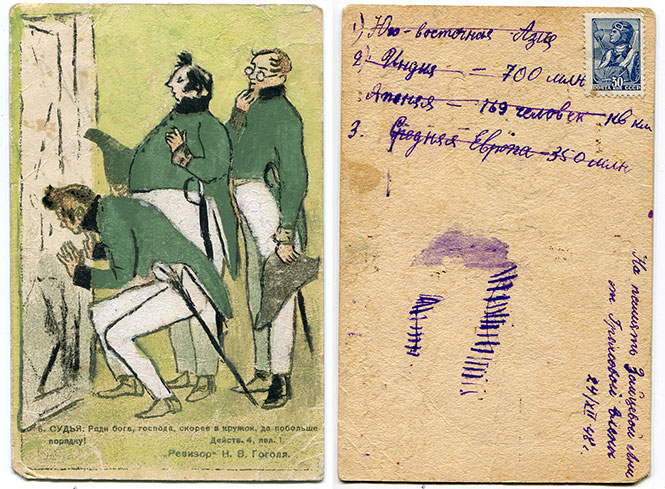 6. СУДЬЯ: Ради бога, господа, скорее в кружок, да побольше
порядку!
Действ. 4, явл. I.
„Ревизор“ Н. В. Гоголя.
1) Юго-восточная Азия
2) Индия – 700 млн
Япония – 169 человек на кв км
3. Средняя Европа – 350 млн
30
ПОЧТА СССР
На память Зайцевой
от Грековой Елены
24/XII 48 г.